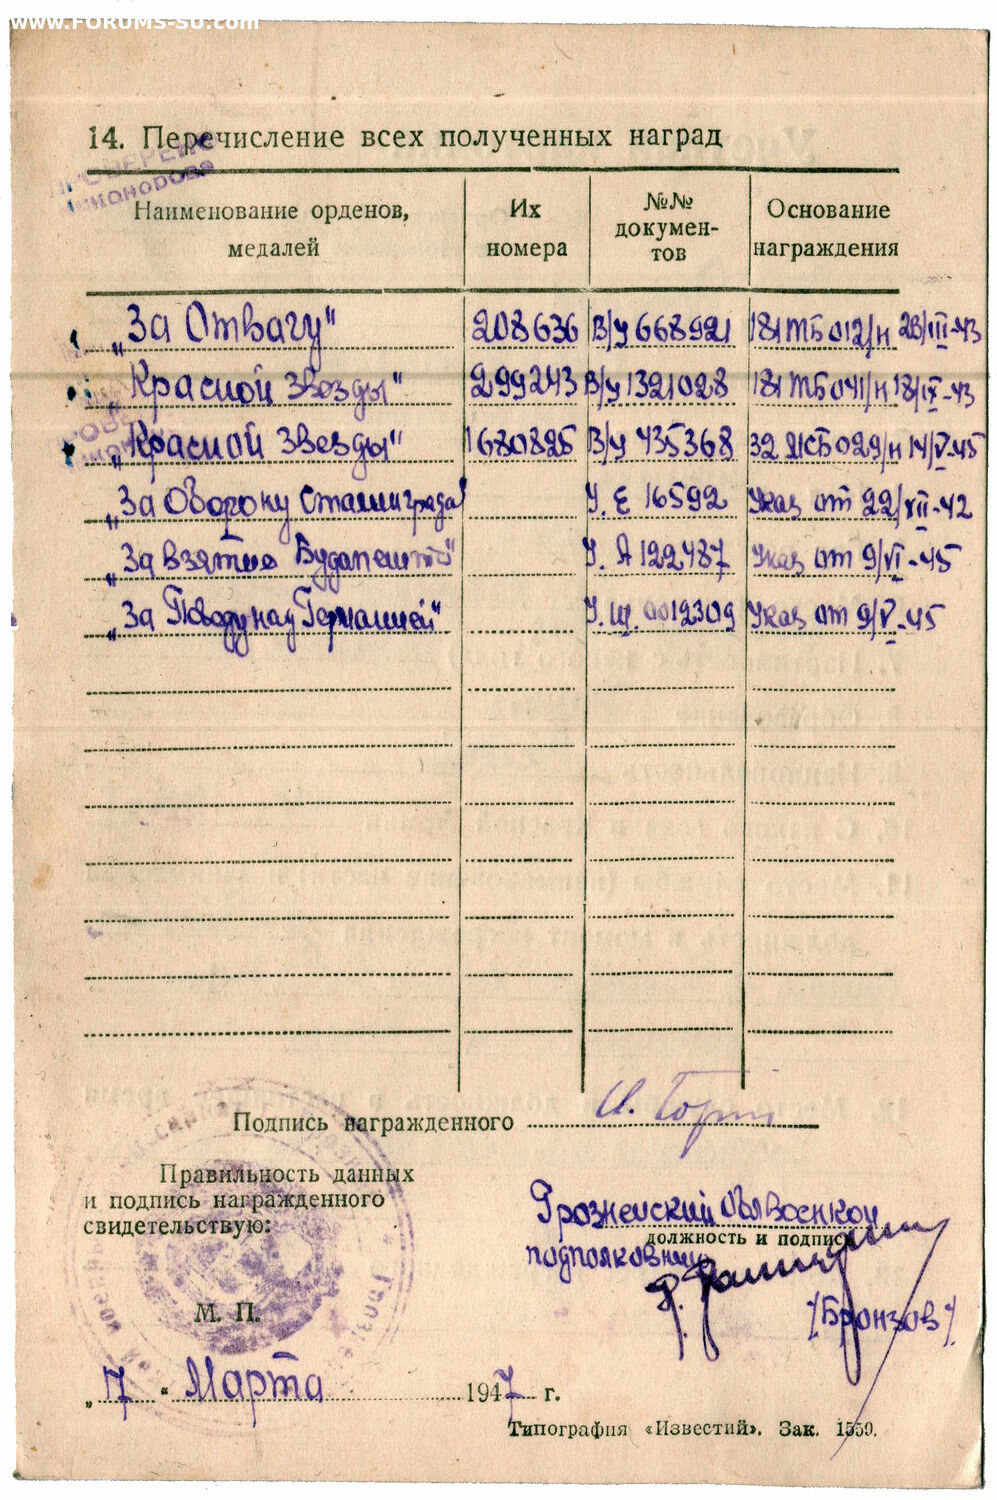 www.FORUMS-SU.com
14. Перечисление всех полученных наград
ПРОВЕРЕНО
Наименование орденов, медалей Их номера №№ документов Основание награждения
„За Отвагу" 208636 В/у 668921 181 ТБ 012/н 23/III-43
„Красной Звезды" 299243 В/у 1321028 181 ТБ 041/н 18/IX-43
„Красной Звезды" 1680825 В/у 435368 32 029/н 14/V-45
„За Оборону Сталинграда" У. Е 16592 Указ от 22/XII-42
„За взятие Будапешта" У. А 122487 Указ от 9/VI-45
„За Победу над Германией" У. Щ. 0012309 Указ от 9/V-45
Подпись награжденного
Правильность данных
и подпись награжденного
свидетельствую:
Грозненский Облвоенком
должность и подпись
подполковник
М. П.
/Бронзов/
„7" Марта 1947 г.
Типография «Известий». Зак. 1550.